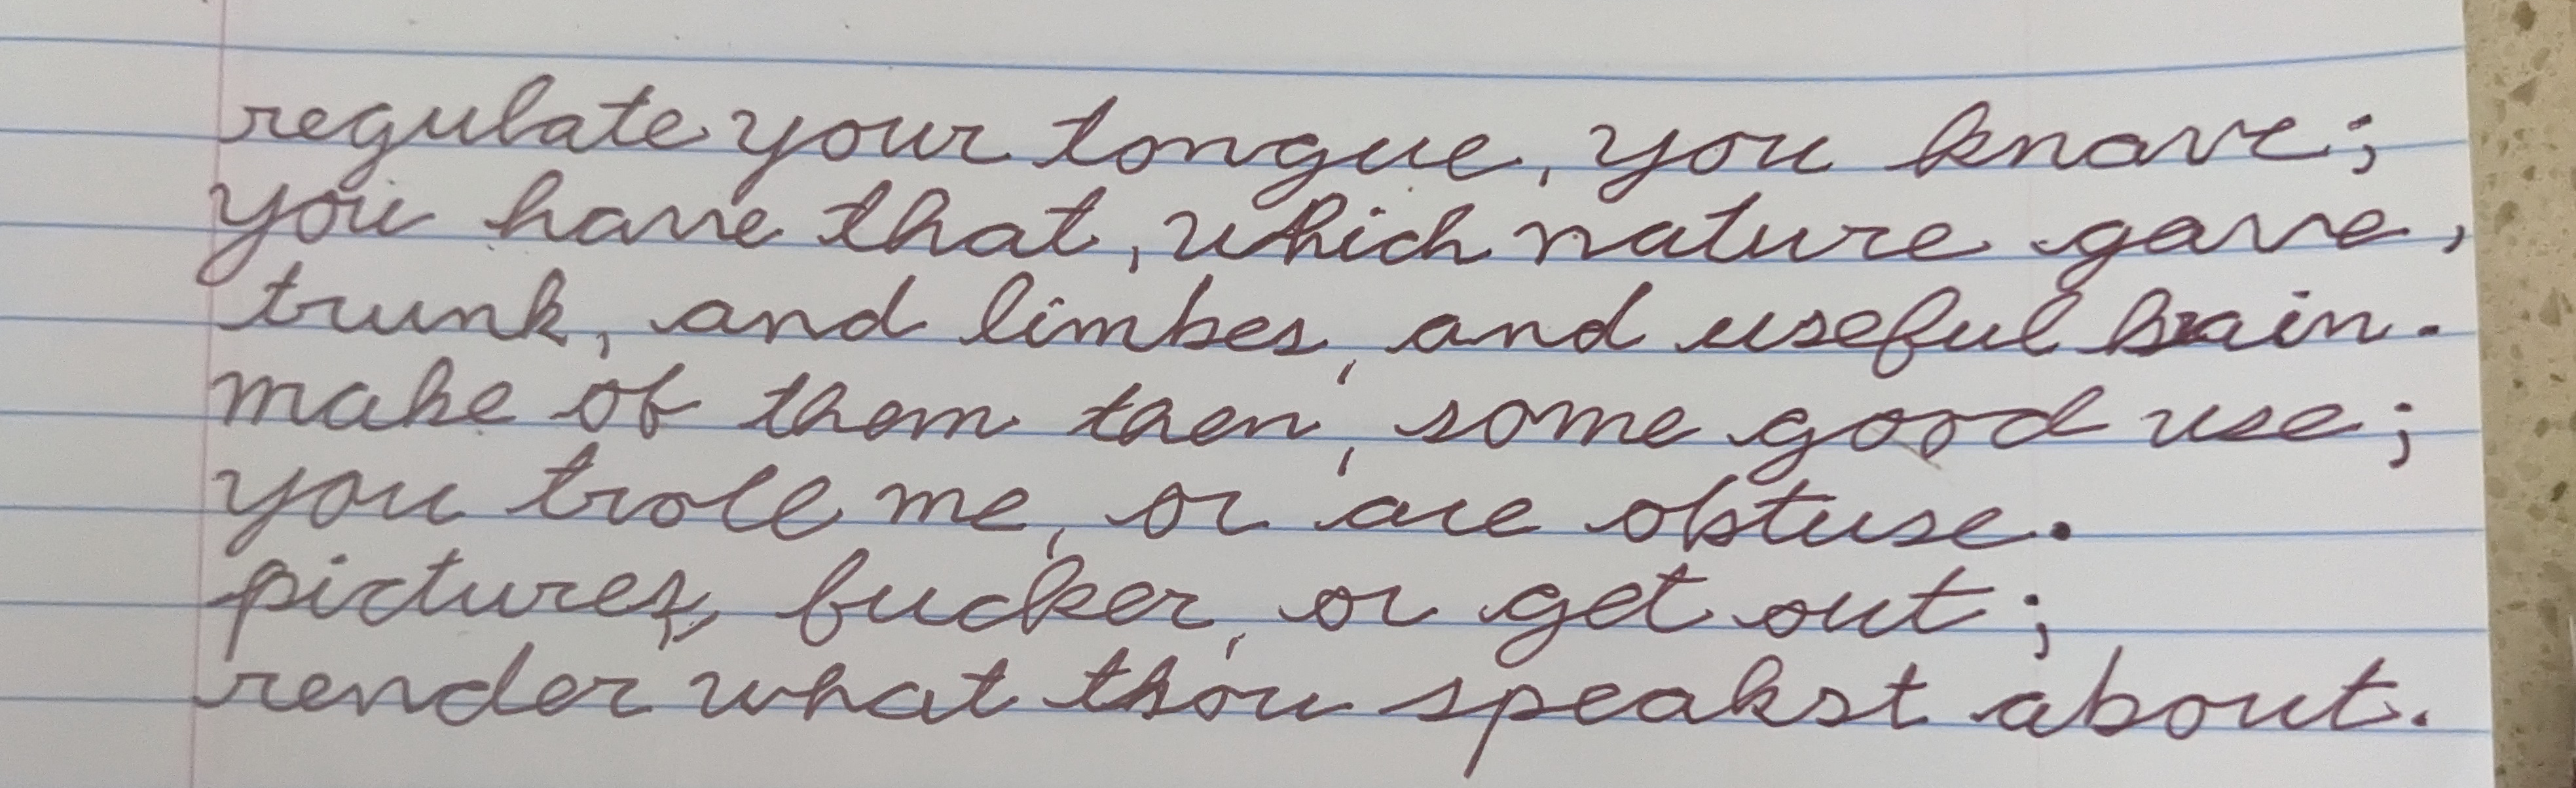 regulate your tongue, you knave;
you have that, which nature gave,
trunk, and limbes, and useful brain.
make of them then, some good use;
you trole me, or are obtuse.
pictures, fucker, or get out;
render what thou speakst about.